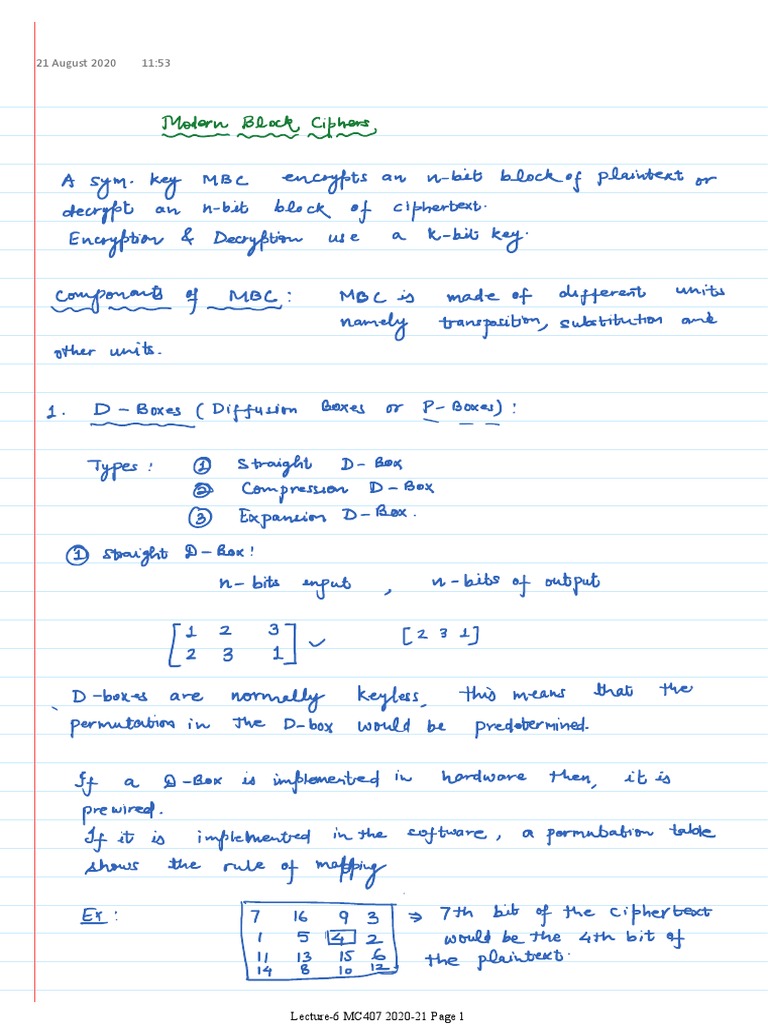 21 August 2020 11:53
Modern Block Ciphers
A sym. key MBC encrypts an n-bit block of plaintext or
decrypt an n-bit block of ciphertext.
Encryption & Decryption use a K-bit key.
Components of MBC: MBC is made of different units
namely transposition, substitution and
other units.
1. D-Boxes (Diffusion Boxes or P-Boxes):
Types: ① Straight D-Box
② Compression D-Box
③ Expansion D-Box.
① Straight D-Box:
n-bits input, n-bits of output
[1 2 3
2 3 1] ✓ [2 3 1]
D-boxes are normally keyless, this means that the
permutation in the D-box would be predetermined.
If a D-Box is implemented in hardware then, it is
prewired.
If it is implemented in the software, a permutation table
shows the rule of mapping
Ex: 7 16 9 3 ⇒ 7th bit of the ciphertext
1 5 4 2 would be the 4th bit of
11 13 15 6 the plaintext.
14 8 10 12
Lecture-6 MC407 2020-21 Page 1